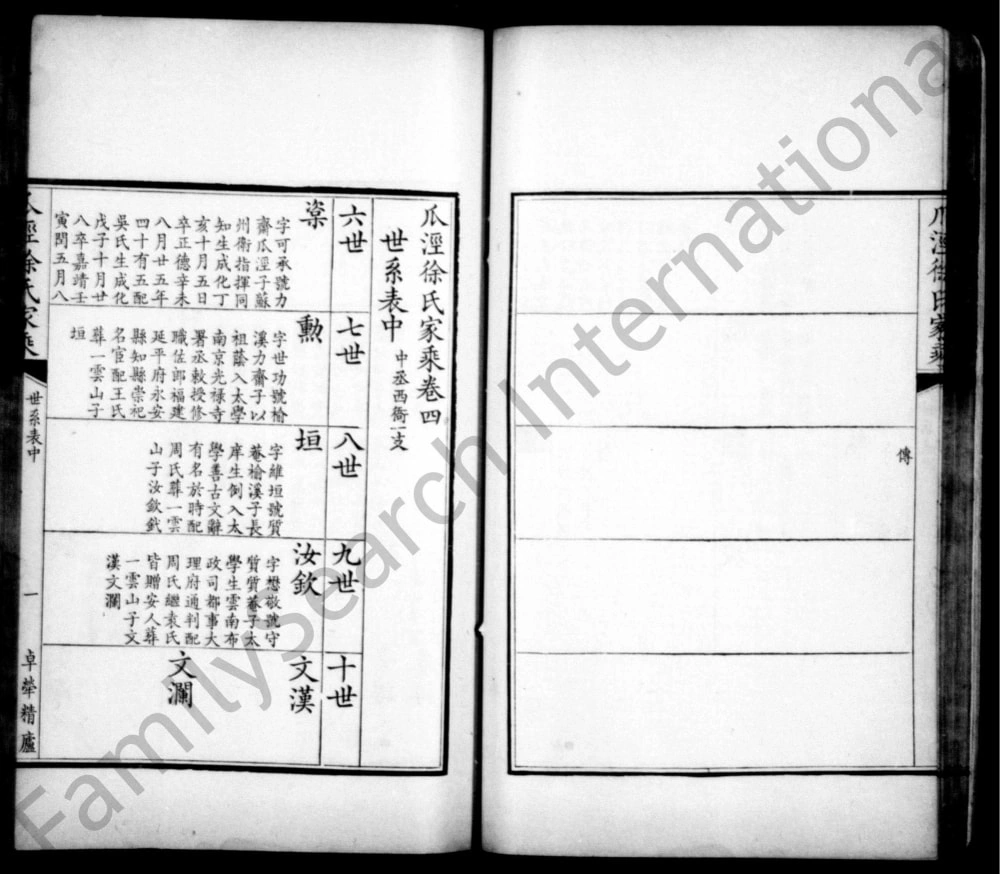 瓜涇徐氏家乘
傳
瓜涇徐氏家乘卷四
世系表中
中丞西衙一支
六世
七世
八世
九世
十世
字可承號力
齋瓜涇子蘇
州衛指揮同
知生成化丁
亥十月五日
卒正德辛未
八月廿五年
四十有五配
吳氏生成化
戊子十月廿
八卒嘉靖壬
寅閏五月八
勲
字世功號榆
溪力齋子以
祖蔭入太學
南京光祿寺
署丞敕授修
職佐郎福建
延平府永安
縣知縣崇祀
名宦配王氏
葬一雲山子
垣
垣
字維垣號質
菴榆溪子長
庠生例入太
學善古文辭
有名於時配
周氏葬一雲
山子汝欽釴
汝欽
字懋敬號守
質質菴子太
學生雲南布
政司都事大
理府通判配
周氏繼袁氏
皆贈安人葬
一雲山子文
漢文瀾
文漢
文瀾
瓜涇徐氏家乘
世系表中
一
卓犖精廬
FamilySearch International